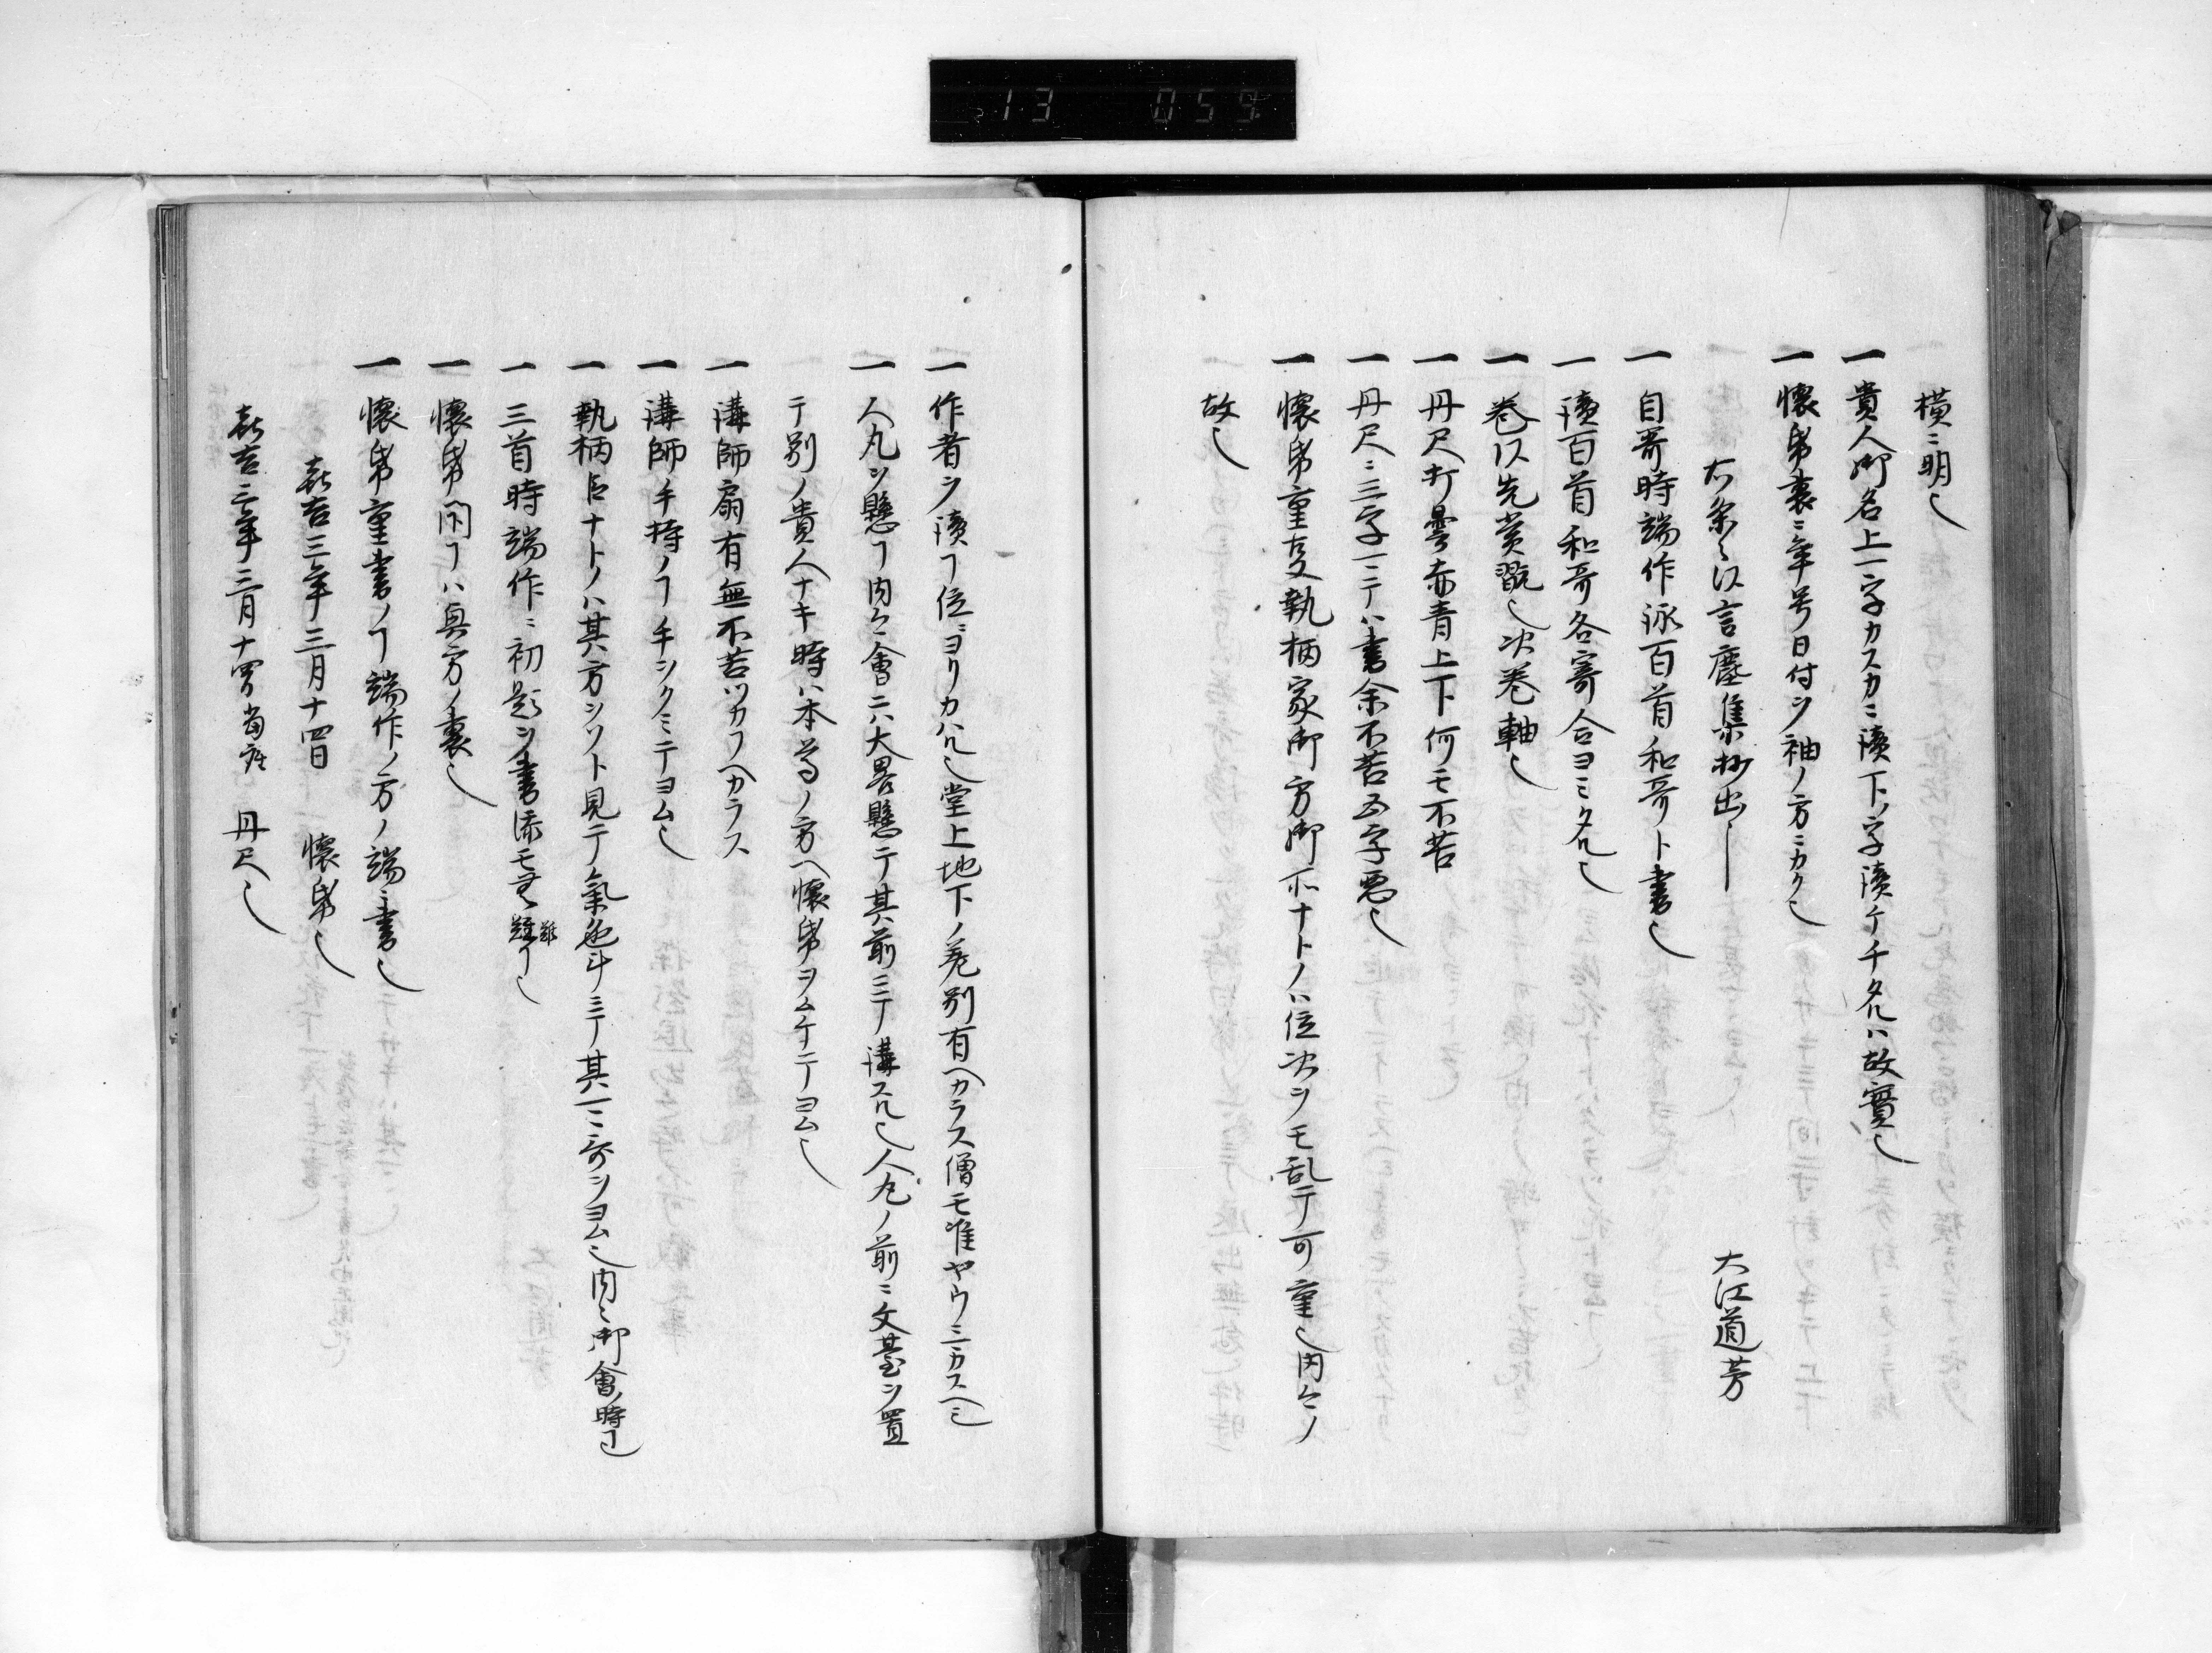 13 059
横ニ明也
一 貴人御名上一字カスカニ讀下ノ字讀ケチタルハ故實也
一 懐帋裏ニ年号日付ヲ袖ノ方ニカク也
右条々以言塵集抄出― 大江道芳
一 自哥時端作詠百首和哥ト書也
一 讀百首和哥各寄合ヨミタル也
一 巻以先賞翫也次巻軸也
一 丹尺打曇赤青上下何モ不苦
一 丹尺ニ三字一ニテハ書余不苦五字悪也
一 懐帋重支執柄家御方御所ナトノハ位次ヲモ乱テ可重也内々ノ
故也
一 作者ヲ讀フ位ニヨリカハル也堂上地下ノ差別有ヘカラス僧モ唯ヤウニカスヘシ
一 人丸ヲ懸フ内々會ニハ大畧懸テ其前ニテ講スル也人丸ノ前ニ文臺ヲ置
テ別ノ貴人ナキ時ハ本尊ノ方ヘ懐帋ヲムケテヨム也
一 講師扇有無不苦ツカフヘカラス
一 講師手持ノフ手ヲクミテヨム也
一 執柄臣ナトノハ其方ヲソト見テ氣色斗ニテ其一ニ哥ヲヨム也内々御會ノ時フ也
一 三首時端作ニ初題ヲ書添モ無難題フ也
一 懐帋閑フハ奥方ノ裏也
一 懐帋重書ノフ端作ノ方ノ端ニ書也
嘉吉三年三月十四日 懐帋也
嘉吉三年三月十四日當座 丹尺也